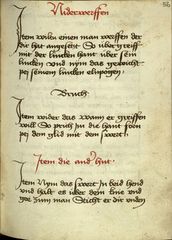 86
Niderwerffen
Item wiltu einen man werffen der
dir hat angesetzt So uber griff
mit der lincken hant uber sein
lincken und nym das gewicht
pej seinem lincken elnpogen
Bruch
Item wider das wann er griffen
will So pruch Im die hant
pej dem glid mit dem swert
Item die and hut
Item Nym das swert in beid hend
und halt es uber dem knie und
get Im man Sticht er dir unden